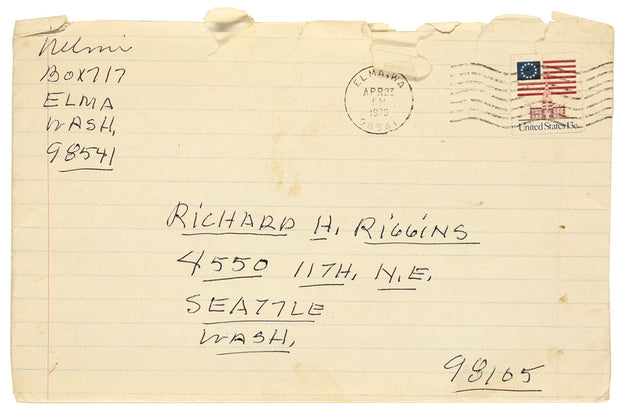 Nelmi
BOX 717
ELMA
WASH,
98541
ELMA, WA
APR 23
PM
98541
United States 13c
RICHARD H. RIGGINS
4550 11TH, N.E.
SEATTLE
WASH,
98105